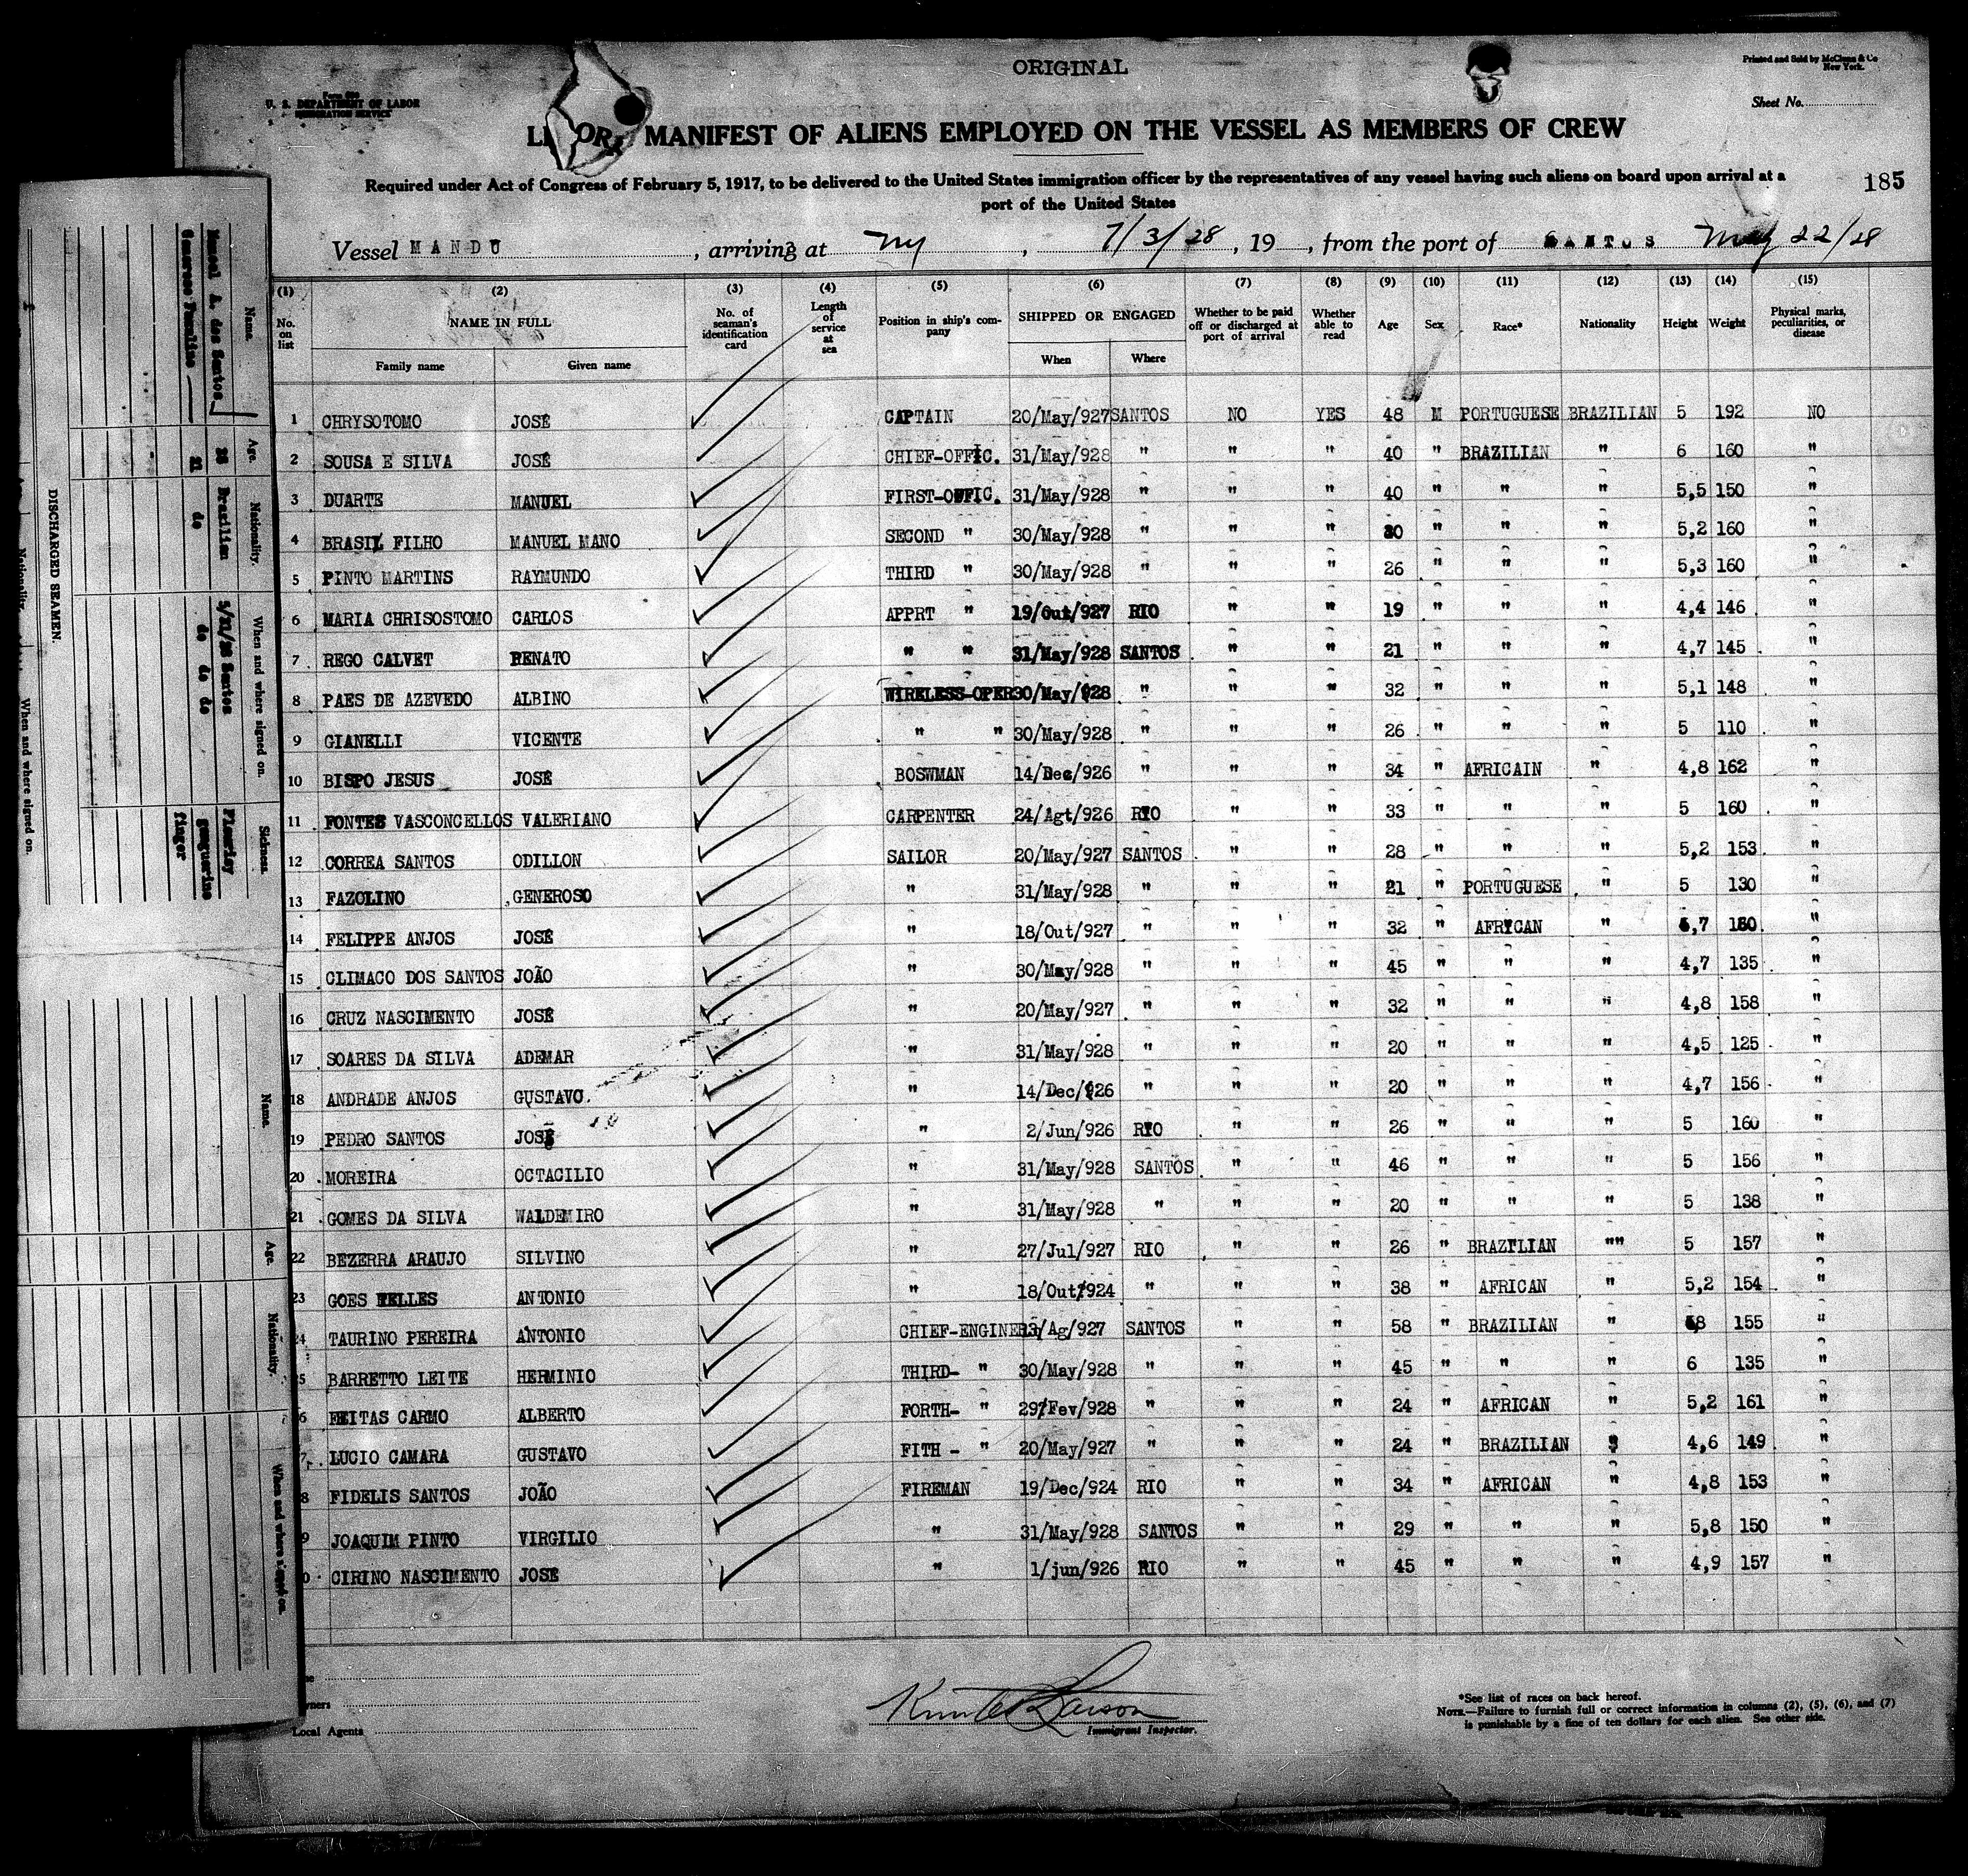 ORIGINAL
U. S. DEPARTMENT OF LABOR
IMMIGRATION SERVICE
Printed and Sold by McClunn & Co
New York.
Sheet No.
OR MANIFEST OF ALIENS EMPLOYED ON THE VESSEL AS MEMBERS OF CREW
Required under Act of Congress of February 5, 1917, to be delivered to the United States immigration officer by the representatives of any vessel having such aliens on board upon arrival at a
port of the United States
185
Vessel MANDU, arriving at NY, 7/3/28, 19, from the port of SANTOS May 22/28
(1) (2) (3) (4) (5) (6) (7) (8) (9) (10) (11) (12) (13) (14) (15)
No. on list NAME IN FULL No. of seaman's identification card Length of service at sea Position in ship's company SHIPPED OR ENGAGED Whether to be paid off or discharged at port of arrival Whether able to read Age Sex Race* Nationality Height Weight Physical marks, peculiarities, or disease
Family name Given name When Where
1 CHRYSOTOMO JOSÉ CAPTAIN 20/May/927 SANTOS NO YES 48 M PORTUGUESE BRAZILIAN 5 192 NO
2 SOUSA E SILVA JOSÉ CHIEF-OFFIC. 31/May/928 " " " 40 " BRAZILIAN " 6 160 "
3 DUARTE MANUEL FIRST-OFFIC. 31/May/928 " " " 40 " " " 5,5 150 "
4 BRASIL FILHO MANUEL MANO SECOND " 30/May/928 " " " 30 " " " 5,2 160 "
5 PINTO MARTINS RAYMUNDO THIRD " 30/May/928 " " " 26 " " " 5,3 160 "
6 MARIA CHRISOSTOMO CARLOS APPRT " 19/Out/927 RIO " " 19 " " " 4,4 146 "
7 REGO CALVET RENATO " " 31/May/928 SANTOS " " 21 " " " 4,7 145 "
8 PAES DE AZEVEDO ALBINO WIRELESS-OPER 30/May/928 " " " 32 " " " 5,1 148 "
9 GIANELLI VICENTE " " 30/May/928 " " " 26 " " " 5 110 "
10 BISPO JESUS JOSÉ BOSWMAN 14/Dec/926 " " " 34 " AFRICAIN " 4,8 162 "
11 FONTES VASCONCELLOS VALERIANO CARPENTER 24/Agt/926 RIO " " 33 " " " 5 160 "
12 CORREA SANTOS ODILLON SAILOR 20/May/927 SANTOS " " 28 " " " 5,2 153 "
13 FAZOLINO GENEROSO " 31/May/928 " " " 21 " PORTUGUESE " 5 130 "
14 FELIPPE ANJOS JOSÉ " 18/Out/927 " " " 32 " AFRICAN " ,7 "
15 CLIMACO DOS SANTOS JOÃO " 30/May/928 " " " 45 " " " 4,7 135 "
16 CRUZ NASCIMENTO JOSÉ " 20/May/927 " " " 32 " " " 4,8 158 "
17 SOARES DA SILVA ADEMAR " 31/May/928 " " " 20 " " " 4,5 125 "
18 ANDRADE ANJOS GUSTAVO. " 14/Dec/926 " " " 20 " " " 4,7 156 "
19 PEDRO SANTOS JOSÉ " 2/Jun/926 RIO " " 26 " " " 5 160 "
20 MOREIRA OCTACILIO " 31/May/928 SANTOS " " 46 " " " 5 156 "
21 GOMES DA SILVA WALDEMIRO " 31/May/928 " " " 20 " " " 5 138 "
22 BEZERRA ARAUJO SILVINO " 27/Jul/927 RIO " " 26 " BRAZILIAN "" 5 157 "
23 GOES TELLES ANTONIO " 18/Out/924 " " " 38 " AFRICAN " 5,2 154 "
24 TAURINO PEREIRA ANTONIO CHIEF-ENGINER /Ag/927 SANTOS " " 58 " BRAZILIAN " 155 "
5 BARRETTO LEITE HERMINIO THIRD- " 30/May/928 " " " 45 " " " 6 135 "
6 FEITAS CARMO ALBERTO FORTH- " 29/Fev/928 " " " 24 " AFRICAN " 5,2 161 "
7 LUCIO CAMARA GUSTAVO FITH - " 20/May/927 " " " 24 " BRAZILIAN " 4,6 149 "
8 FIDELIS SANTOS JOÃO FIREMAN 19/Dec/924 RIO " " 34 " AFRICAN " 4,8 153 "
9 JOAQUIM PINTO VIRGILIO " 31/May/928 SANTOS " " 29 " " " 5,8 150 "
0 CIRINO NASCIMENTO JOSÉ " 1/jun/926 RIO " " 45 " " " 4,9 157 "
Local Agents
Immigrant Inspector.
*See list of races on back hereof.
NOTE.—Failure to furnish full or correct information in columns (2), (5), (6), and (7)
is punishable by a fine of ten dollars for each alien. See other side.
DISCHARGED SEAMEN.
Name. Age. Nationality. When and where signed on. Sickness.
Manoel A. dos Santos 28 Brazilian 5/21/28 Santos Pleurisy
Generoso Fazolino 21 do do do do finger
Name. Age. Nationality. When and where signed on.
Nationality. When and where signed on.